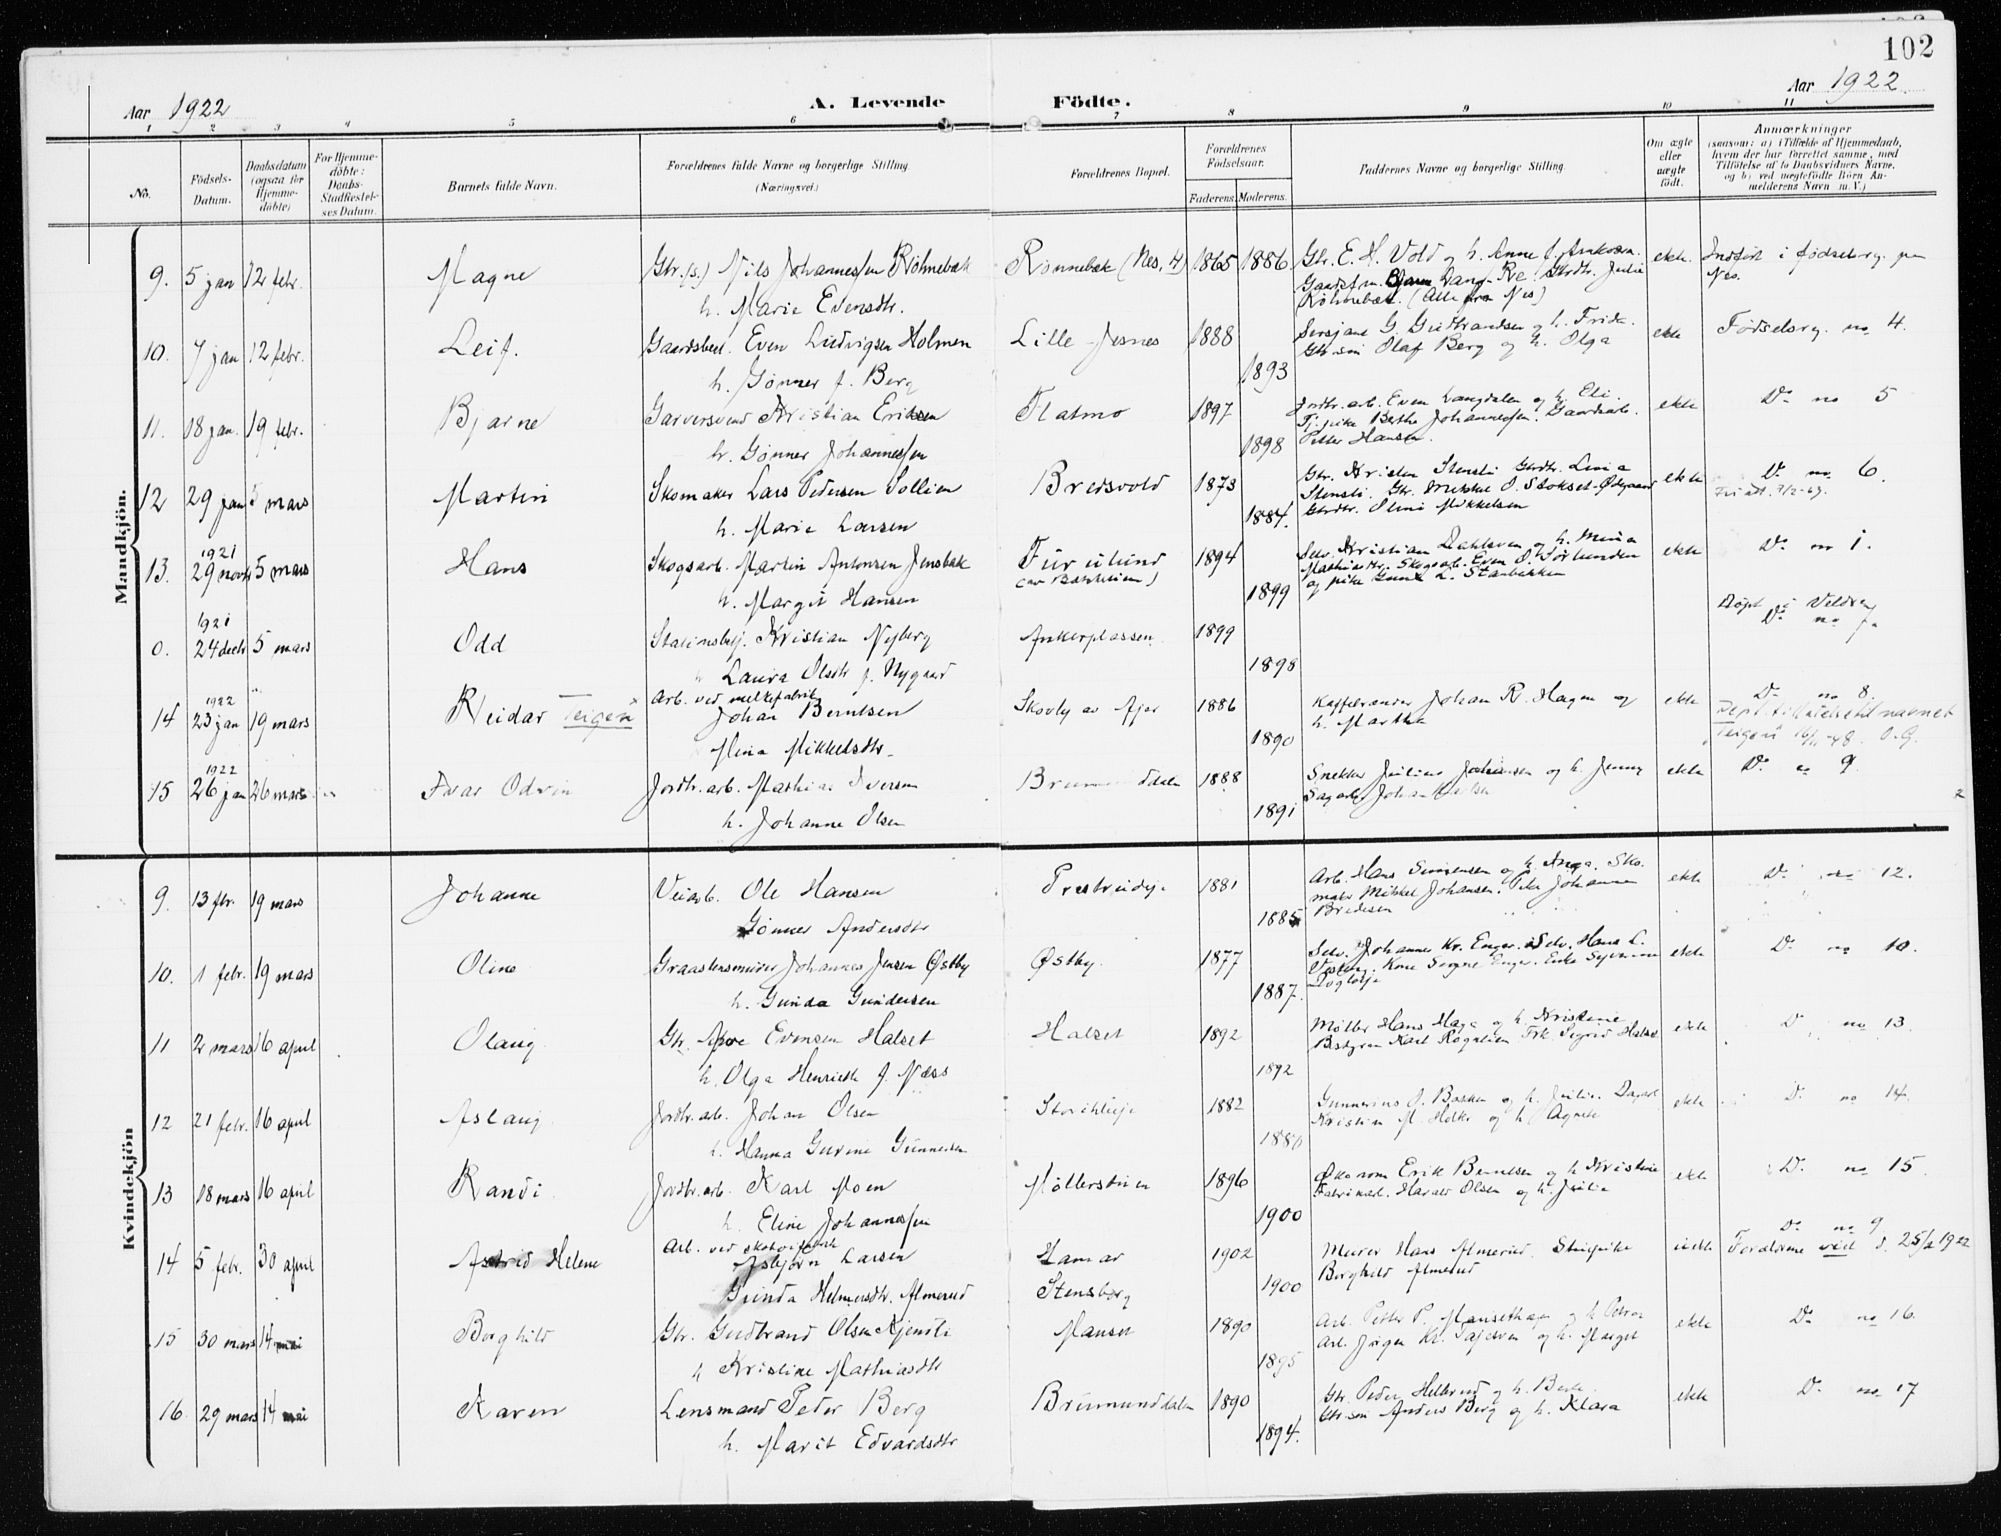 102
Aar 1922
A. Levende
Födte.
Aar 1922
1 2 3 4 5 6 7 8 9 10 11
No.
Födsels-
Datum.
Daabsdatum
(ogsaa for
Hjemme-
döbte)
For Hjemme-
döbte:
Daabs-
Stadfæstel-
ses Datum.
Barnets fulde Navn.
Forældrenes fulde Navne og borgerlige Stilling
(Næringsvei.)
Forældrenes Bopæl.
Forældrenes
Födselsaar.
Faderens. Moderens.
Faddernes Navne og borgerlige Stilling.
Om ægte
eller
uægte
födt.
Anmærkninger
(saasom: a) i Tilfælde af Hjemmedaab,
hvem der har forrettet samme, med
Tilföielse af to Daabsvidners Navne.
og b) ved uægtefödte Börn An-
melderens Navn m. V.)
Mandkjön.
9. 5 jan 12 febr. Magne Gbr. (s.) Nils Johannessen Röhnebæk Rønnebæk (Nes, H) 1865 1886 Gbr. E. H. Vold og h. Anne ekte. Indført i fødselsreg. paa
h. Marie Evensdtr. Røhnebæk. (Alle fra Nes) Nes.
10. 7 jan 12 febr. Leif. Gaardsbest. Even Ludvigsen Holmen Lille-Jesnes 1888 Sersjant G. Gudbrandsen og h. Frida. ekte Fødselsreg. no 4.
h. Gønner f. Berg 1893 Gbr.søn Olaf Berg og h. Olga
11. 18 jan. 19 febr. Bjarne Garversvend Kristian Eriksen Flatmo 1897 Jordbr. arb. Even Langdalen og h. Eli. ekte Do no 5
h. Gønner Johannessen 1898 Tj. pike Berthe Johannessen. Gaardsarb.
Petter Hansen.
12 29 jan 5 mars Martin Skomaker Lars Pedersen Sollien Bredsvold 1873 Gbr. Kristen Stensli Gbrdtr. Lina ekte Do no 6.
h. Marie Larsen 1884. Stensli. Gbr. Mikkel O. Stokset-Ødegaard
Gbrdtr. Oline Mikkelsen
13. 1921 29 novbr 5 mars Hans Skogsarb. Martin Antonsen Jensbak Furulund 1894 Selv. Kristian Dahlsven og h. Mina ekte Do no 1.
h. Margit Hansen 1899 Mathiasdtr. Skogsarb. Even O.
og pike Gunda L. Starbekken
0. 1921 24 decbr 5 mars Odd Stationsbetj. Kristian Nyberg Ankerplassen. 1899 Døpt i Veldre
Laura Olsdtr f. Nygaard 1898 Do no 7.
14 1922 23 jan 19 mars Reidar Teigen Arb. ved melkefabrik Johan Berntsen Skovly av Njør 1886 Kaffebrænder Johan R. Hagen og ekte Do no 8.
Mina Mikkelsdtr. 1890 h. Marthe Dept. tillatelse til navnet
Teigen 16/11-48. O.G.
15 1922 26 jan 26 mars Ivar Odvin Jordbr. arb. Mathias Iversen Brumunddalen 1888 Snekker Julius Johansen og h. Jenny ekte Do no 9
h. Johanne Olsen 1891 Sagarb. Johan
Kvindekjön
9. 13 fbr. 19 mars Johanne Veiarb. Ole Hansen 1881 Arb. Hans Simensen og h. Anga. Sko. ekte Do no 12.
Gønner Andersdtr 1885 maker Mikkel Johansen. Pike Johanne
Bredesen
10. 1 febr. 19 mars Oline Graastensmurer Johannes Jensen Østby Østby. 1877 Selv. Johannes Kr. Enger. Selv. Hans L. ekte Do no 10.
h. Gunda Gundersen 1887.
11 2 mars 16 april Olaug Gbr. Arve Evensen Halset Halset 1892 Møller Hans Haga og h. Kristine ekte Do no 13.
h. Olga Henriette f. Næss 1892 Bestyrer Karl Rognlien Frk. Sigrid Halset
12 21 febr. 16 april Aslaug Jordbr. arb. Johan Olsen 1882 Gunnerius O. Bakken og h. Julie. ekte Do no 14.
h. Hanna Gurine Gunnersen Kristian M. og h. Agnete
13 18 mars 16 april Randi Jordbr. arb. Karl Moen Møllerstuen 1896 Økonom Erik Berntsen og h Kristine ekte Do no 15.
h. Eline Johannessen 1900 Fabrikarb. Harald Olsen og h. Julie
14 5 febr. 30 april Astrid Helene Arb. ved skotøifabrik Asbjørn Larsen Hamar 1902 Murer Hans Almerud. uekte Do no 9
Gunda Helmersdtr. Almerud Stensborg 1900 Borghild Almerud Forældrene viet d. 25/2 1922
15 30 mars 14 mai Borghild Gbr. Gudbrand Olsen Kjensli Manset 1890 Arb. Petter P. Mansethagen og h Petra ekte Do no 16.
h Kristine Mathiasdtr 1895 Arb. Jørgen Kr. og h. Margit
16. 29 mars 14 mai Karen Lensmand Peter Berg Brumunddalen 1890 Gbr. Peder Hellerud og h. Berte. ekte Do no 17
h. Marit Edvardsdtr 1894. Gbr.søn Anders Berg og h. Klara